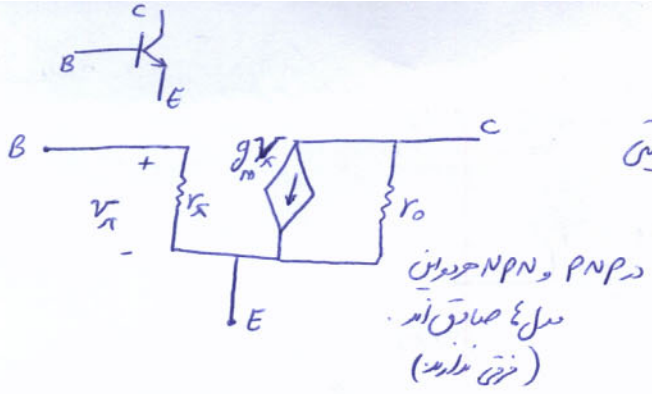 C
B
E
B
+
g_m V_π
C
V_π
r_π
r_o
-
E
در PNP و NPN هردو این
مدل ها صادق اند .
(فرقی ندارند)